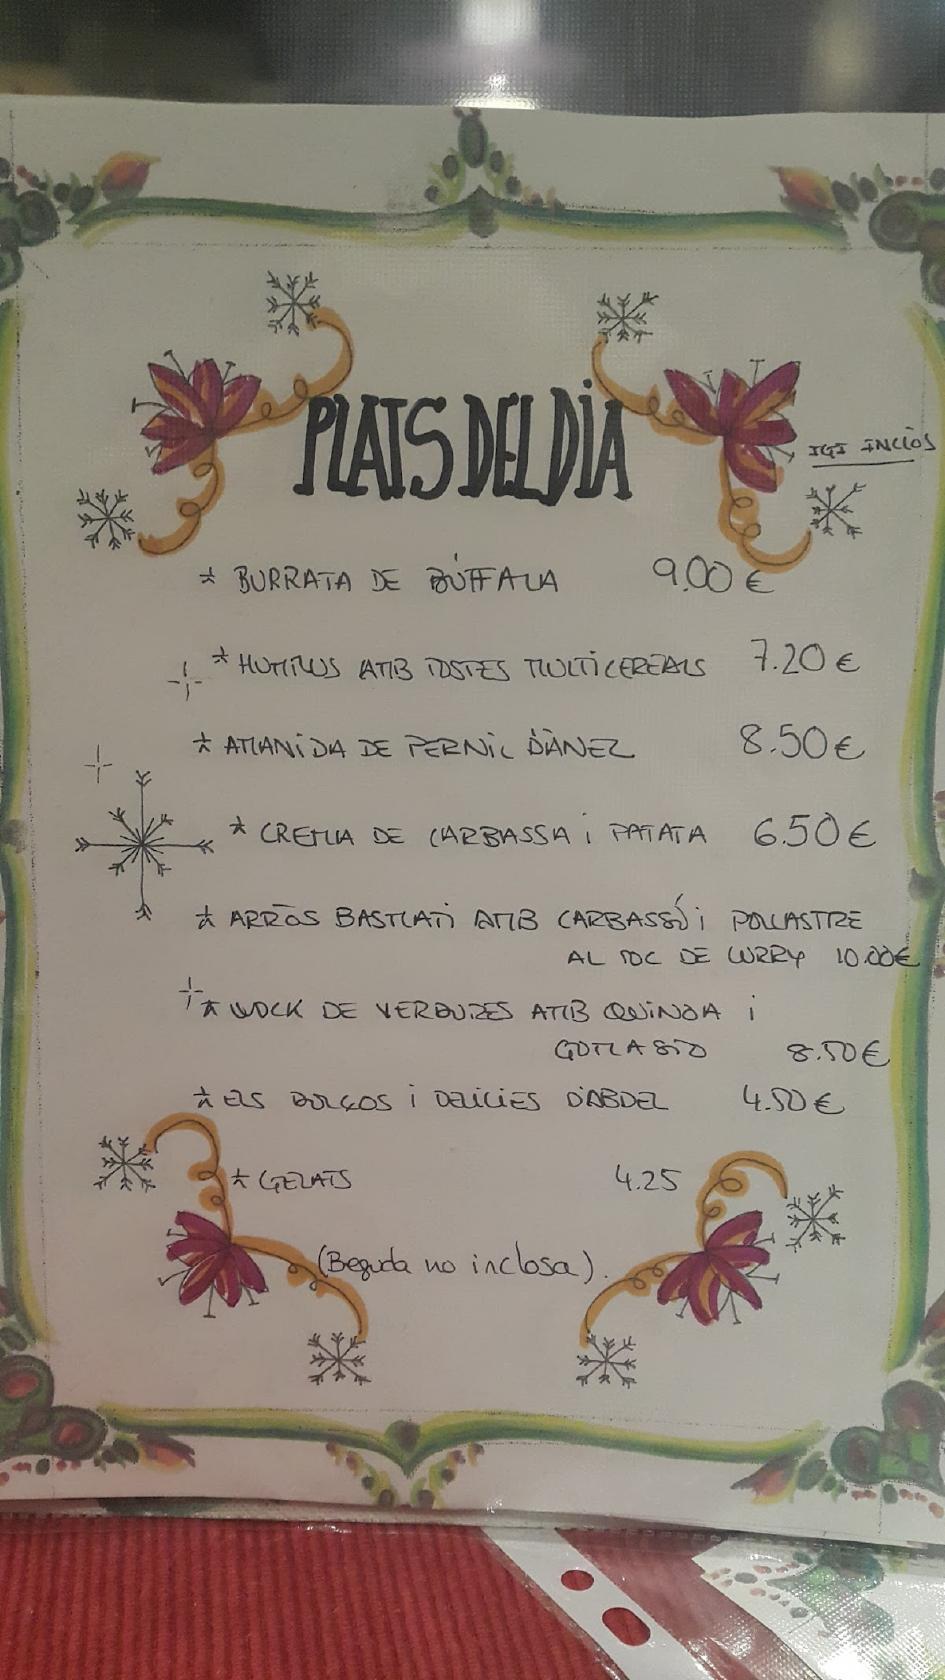 PLATS DEL DÌA
IGI INCLÒS
* BURRATA DE BÚFFALA 9.00 €
* HUMMUS AMB TOSTES MULTICEREALS 7.20 €
* AMANIDA DE PERNIL D'ÀNEC 8.50 €
* CREMA DE CARBASSA i PATATA 6.50 €
* ARRÒS BASMATI AMB CARBASSÓ i POLLASTRE
AL TOC DE CURRY 10.00€
* WOCK DE VERDURES AMB QUINOA i
GOMASIO 8.50€
* ELS DOLÇOS i DELÍCIES D'ABDEL 4.50 €
* GELATS 4.25
(Beguda no inclosa).